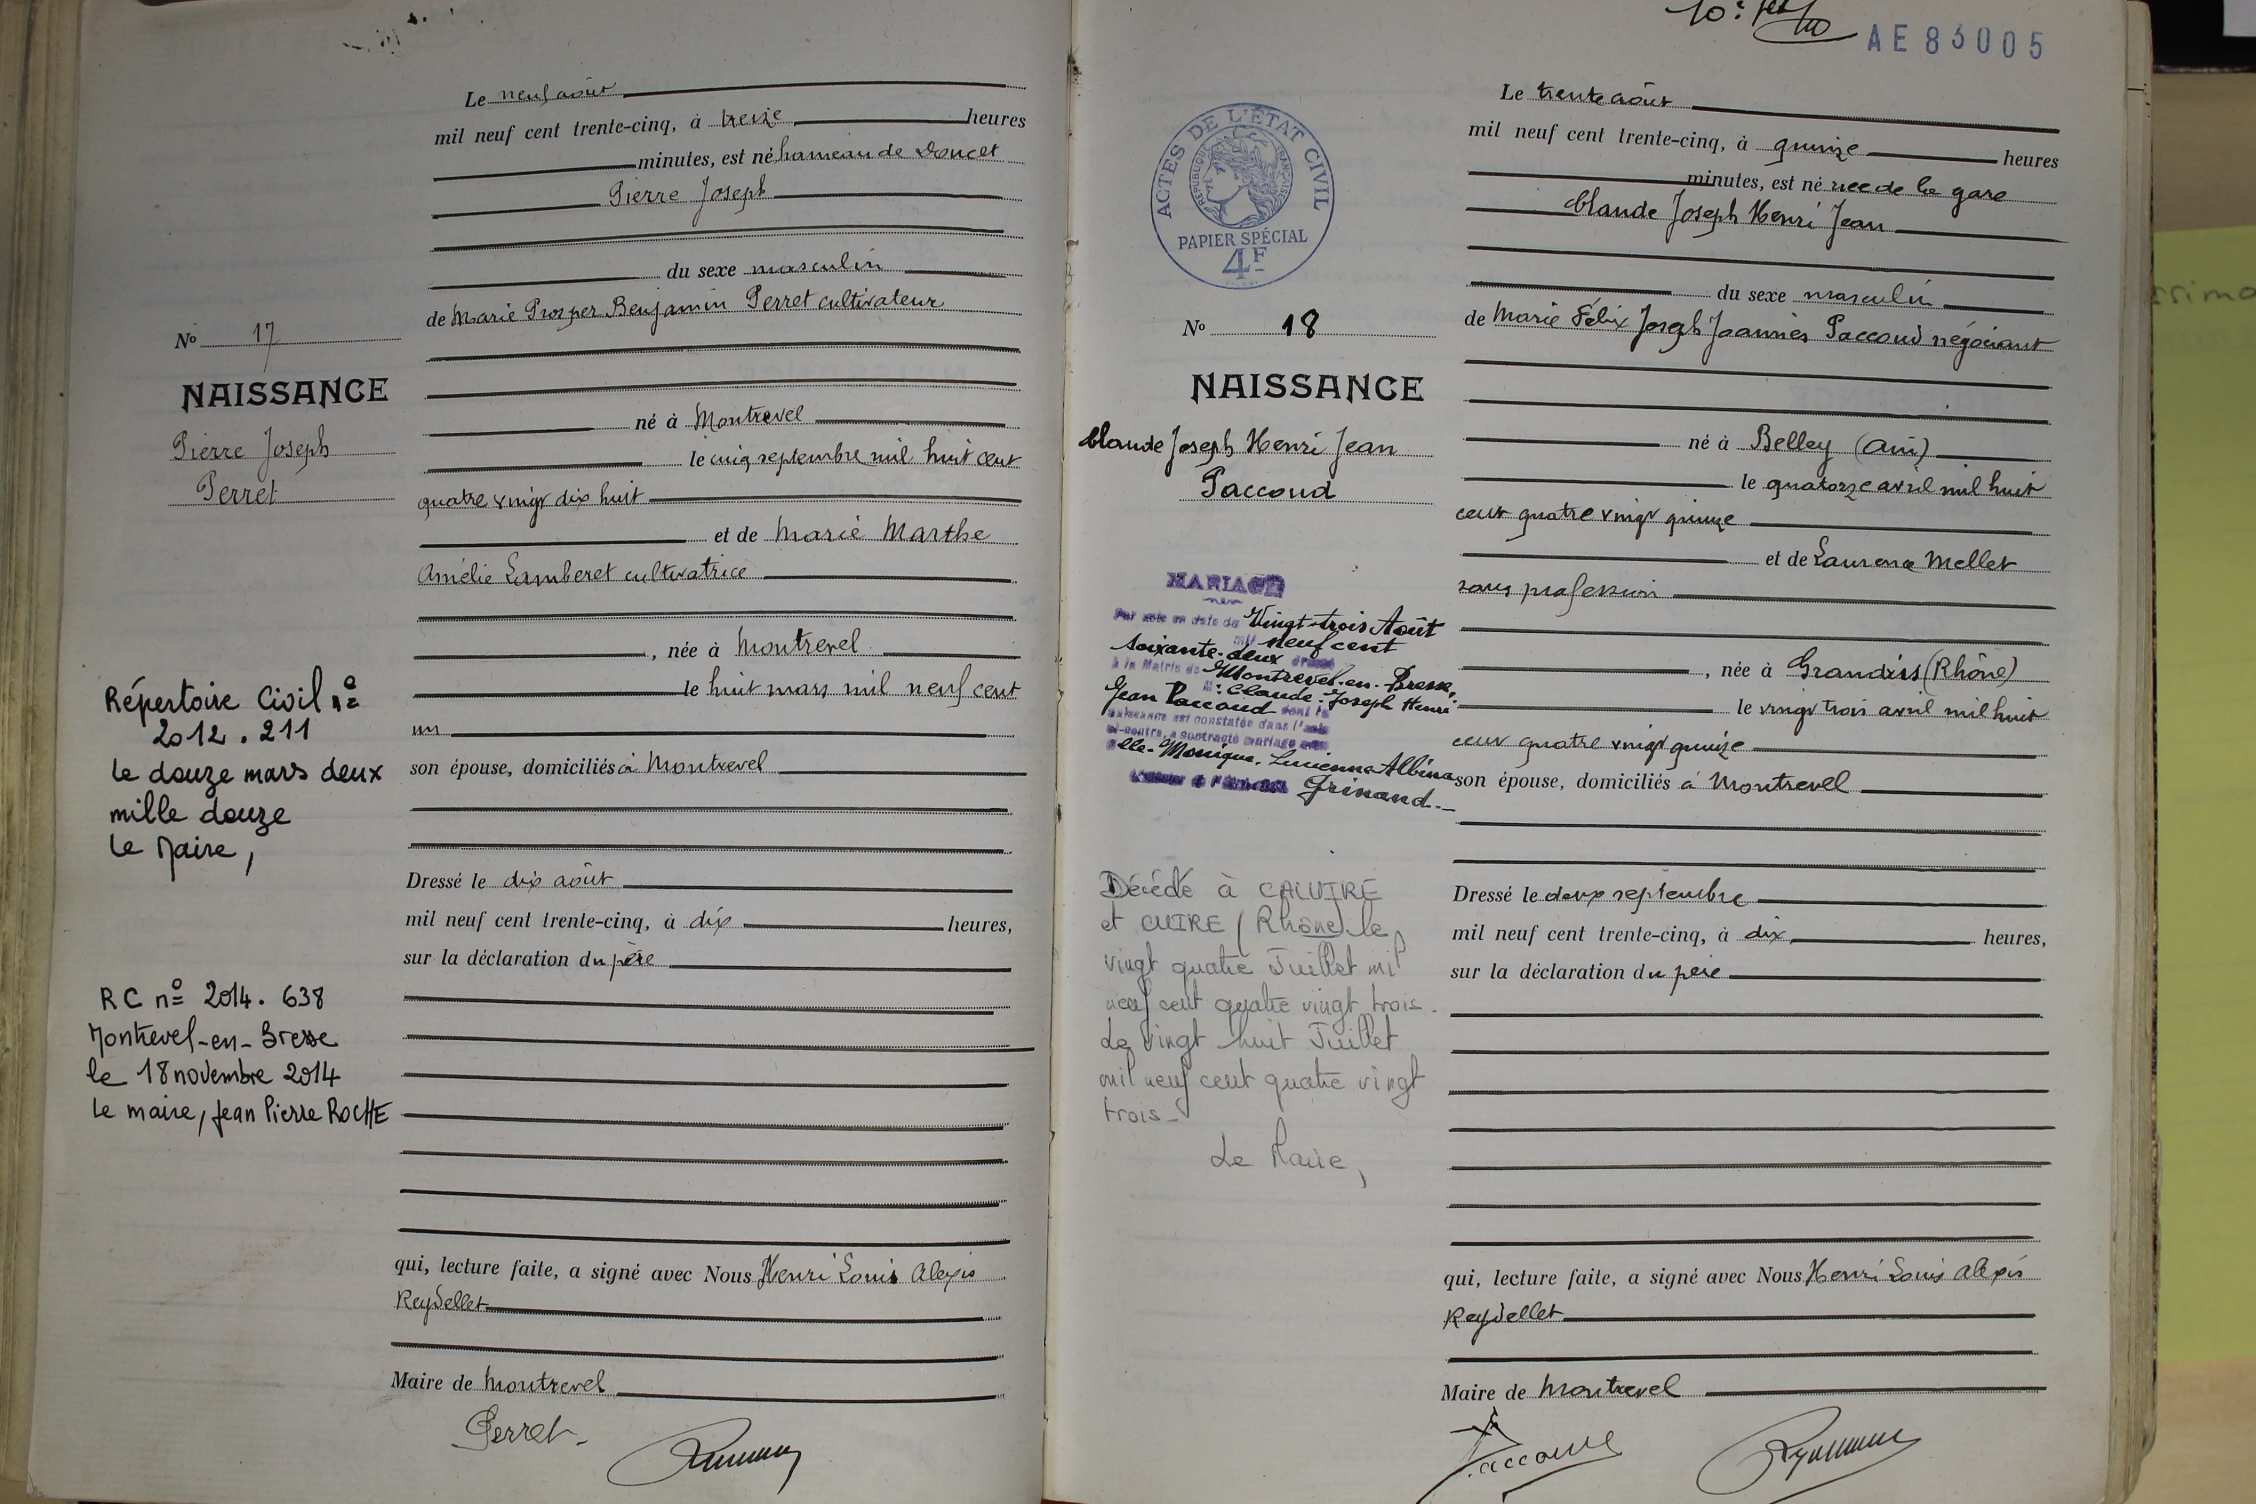 Le neuf août
mil neuf cent trente-cinq, à treize heures
minutes, est né hameau de Doncet
Pierre Joseph
du sexe masculin
de Marie Prosper Benjamin Perret cultivateur
No 17
NAISSANCE
Pierre Joseph
Perret
né à Montrevel
le cinq septembre mil huit cent
quatre vingt dix huit
et de Marie Marthe
Amélie Lamberet cultivatrice
, née à Montrevel
le huit mars mil neuf cent
un
son épouse, domiciliés à Montrevel
Répertoire Civil no
2012.211
le douze mars deux
mille douze
Le Maire,
Dressé le dix août
mil neuf cent trente-cinq, à dix heures,
sur la déclaration du père
RC no 2014.638
Montrevel-en-Bresse
le 18 novembre 2014
Le maire, Jean Pierre ROCHE
qui, lecture faite, a signé avec Nous Henri Louis Alexis
Reydellet
Maire de Montrevel
Perret
AE83005
ACTES DE L'ÉTAT CIVIL
RÉPUBLIQUE FRANÇAISE
PAPIER SPÉCIAL
4F
Le trente août
mil neuf cent trente-cinq, à quinze heures
minutes, est né rue de la gare
Claude Joseph Henri Jean
du sexe masculin
de Marie Félix Joseph Joannès Paccoud négociant
No 18
NAISSANCE
Claude Joseph Henri Jean
Paccoud
né à Belley (Ain)
le quatorze avril mil huit
cent quatre vingt quinze
et de Laurence Mellet
sans profession
, née à Grandris (Rhône)
le vingt trois avril mil huit
cent quatre vingt quinze
son épouse, domiciliés à Montrevel
MARIAGE
Par acte en date du Vingt-trois Août
mil neuf cent
soixante-deux dressé
à la Mairie de Montrevel-en-Bresse,
M. Claude-Joseph Henri
Jean Paccoud dont la
naissance est constatée dans l'acte
ci-contre, a contracté mariage avec
elle-Monique, Lucienne Albina
Grinand.-
Décédé à CALUIRE
et CUIRE (Rhône) le
vingt quatre Juillet mil
neuf cent quatre vingt trois.
Le vingt huit Juillet
mil neuf cent quatre vingt
trois-
Le Maire,
Dressé le deux septembre
mil neuf cent trente-cinq, à dix heures,
sur la déclaration du père
qui, lecture faite, a signé avec Nous Henri Louis Alexis
Reydellet
Maire de Montrevel
Paccoud